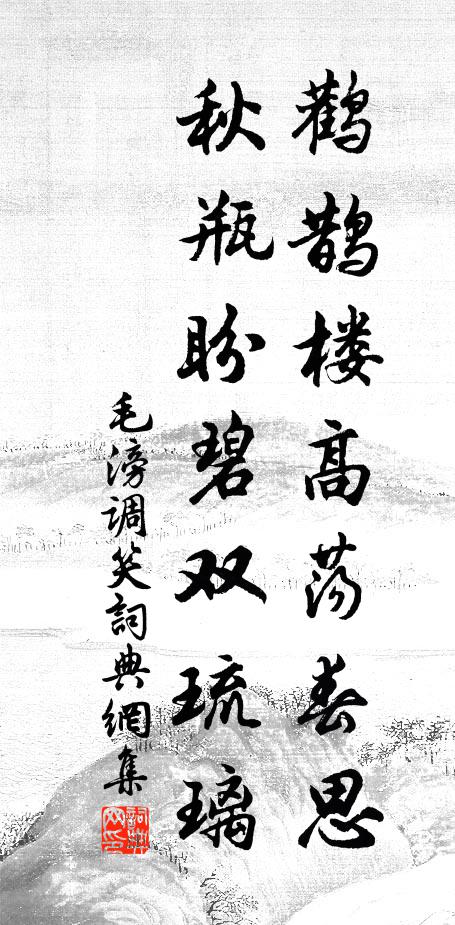 鹳鹊楼高荡春思
秋瓶盼碧双琉璃
毛滂调笑詞典網集